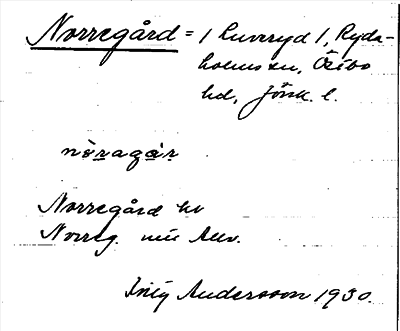 Norregård = 1 Luvsryd 1, Ryda-
holms sn, Östbo
hd, Jönk. l.
nòragàr
Norregård hv
Norreg.
Andersson 1930.